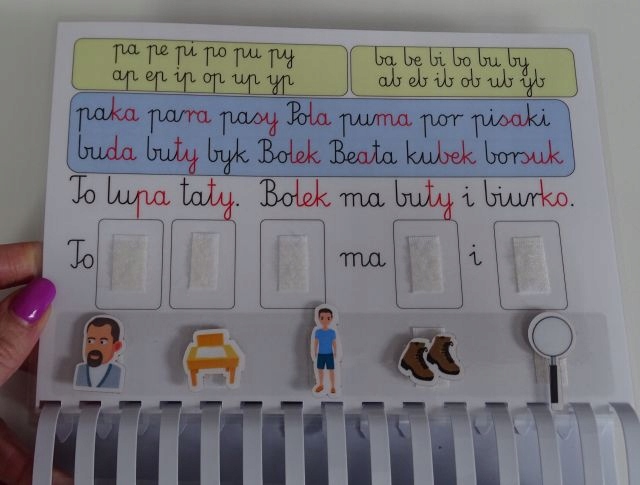 pa pe pi po pu py
ap ep ip op up yp
ba be bi bo bu by
ab eb ib ob ub yb
paka para pasy Pola puma por pisaki
buda buty byk Bolek Beata kubek borsuk
To lupa taty. Bolek ma buty i biurko.
To ma i